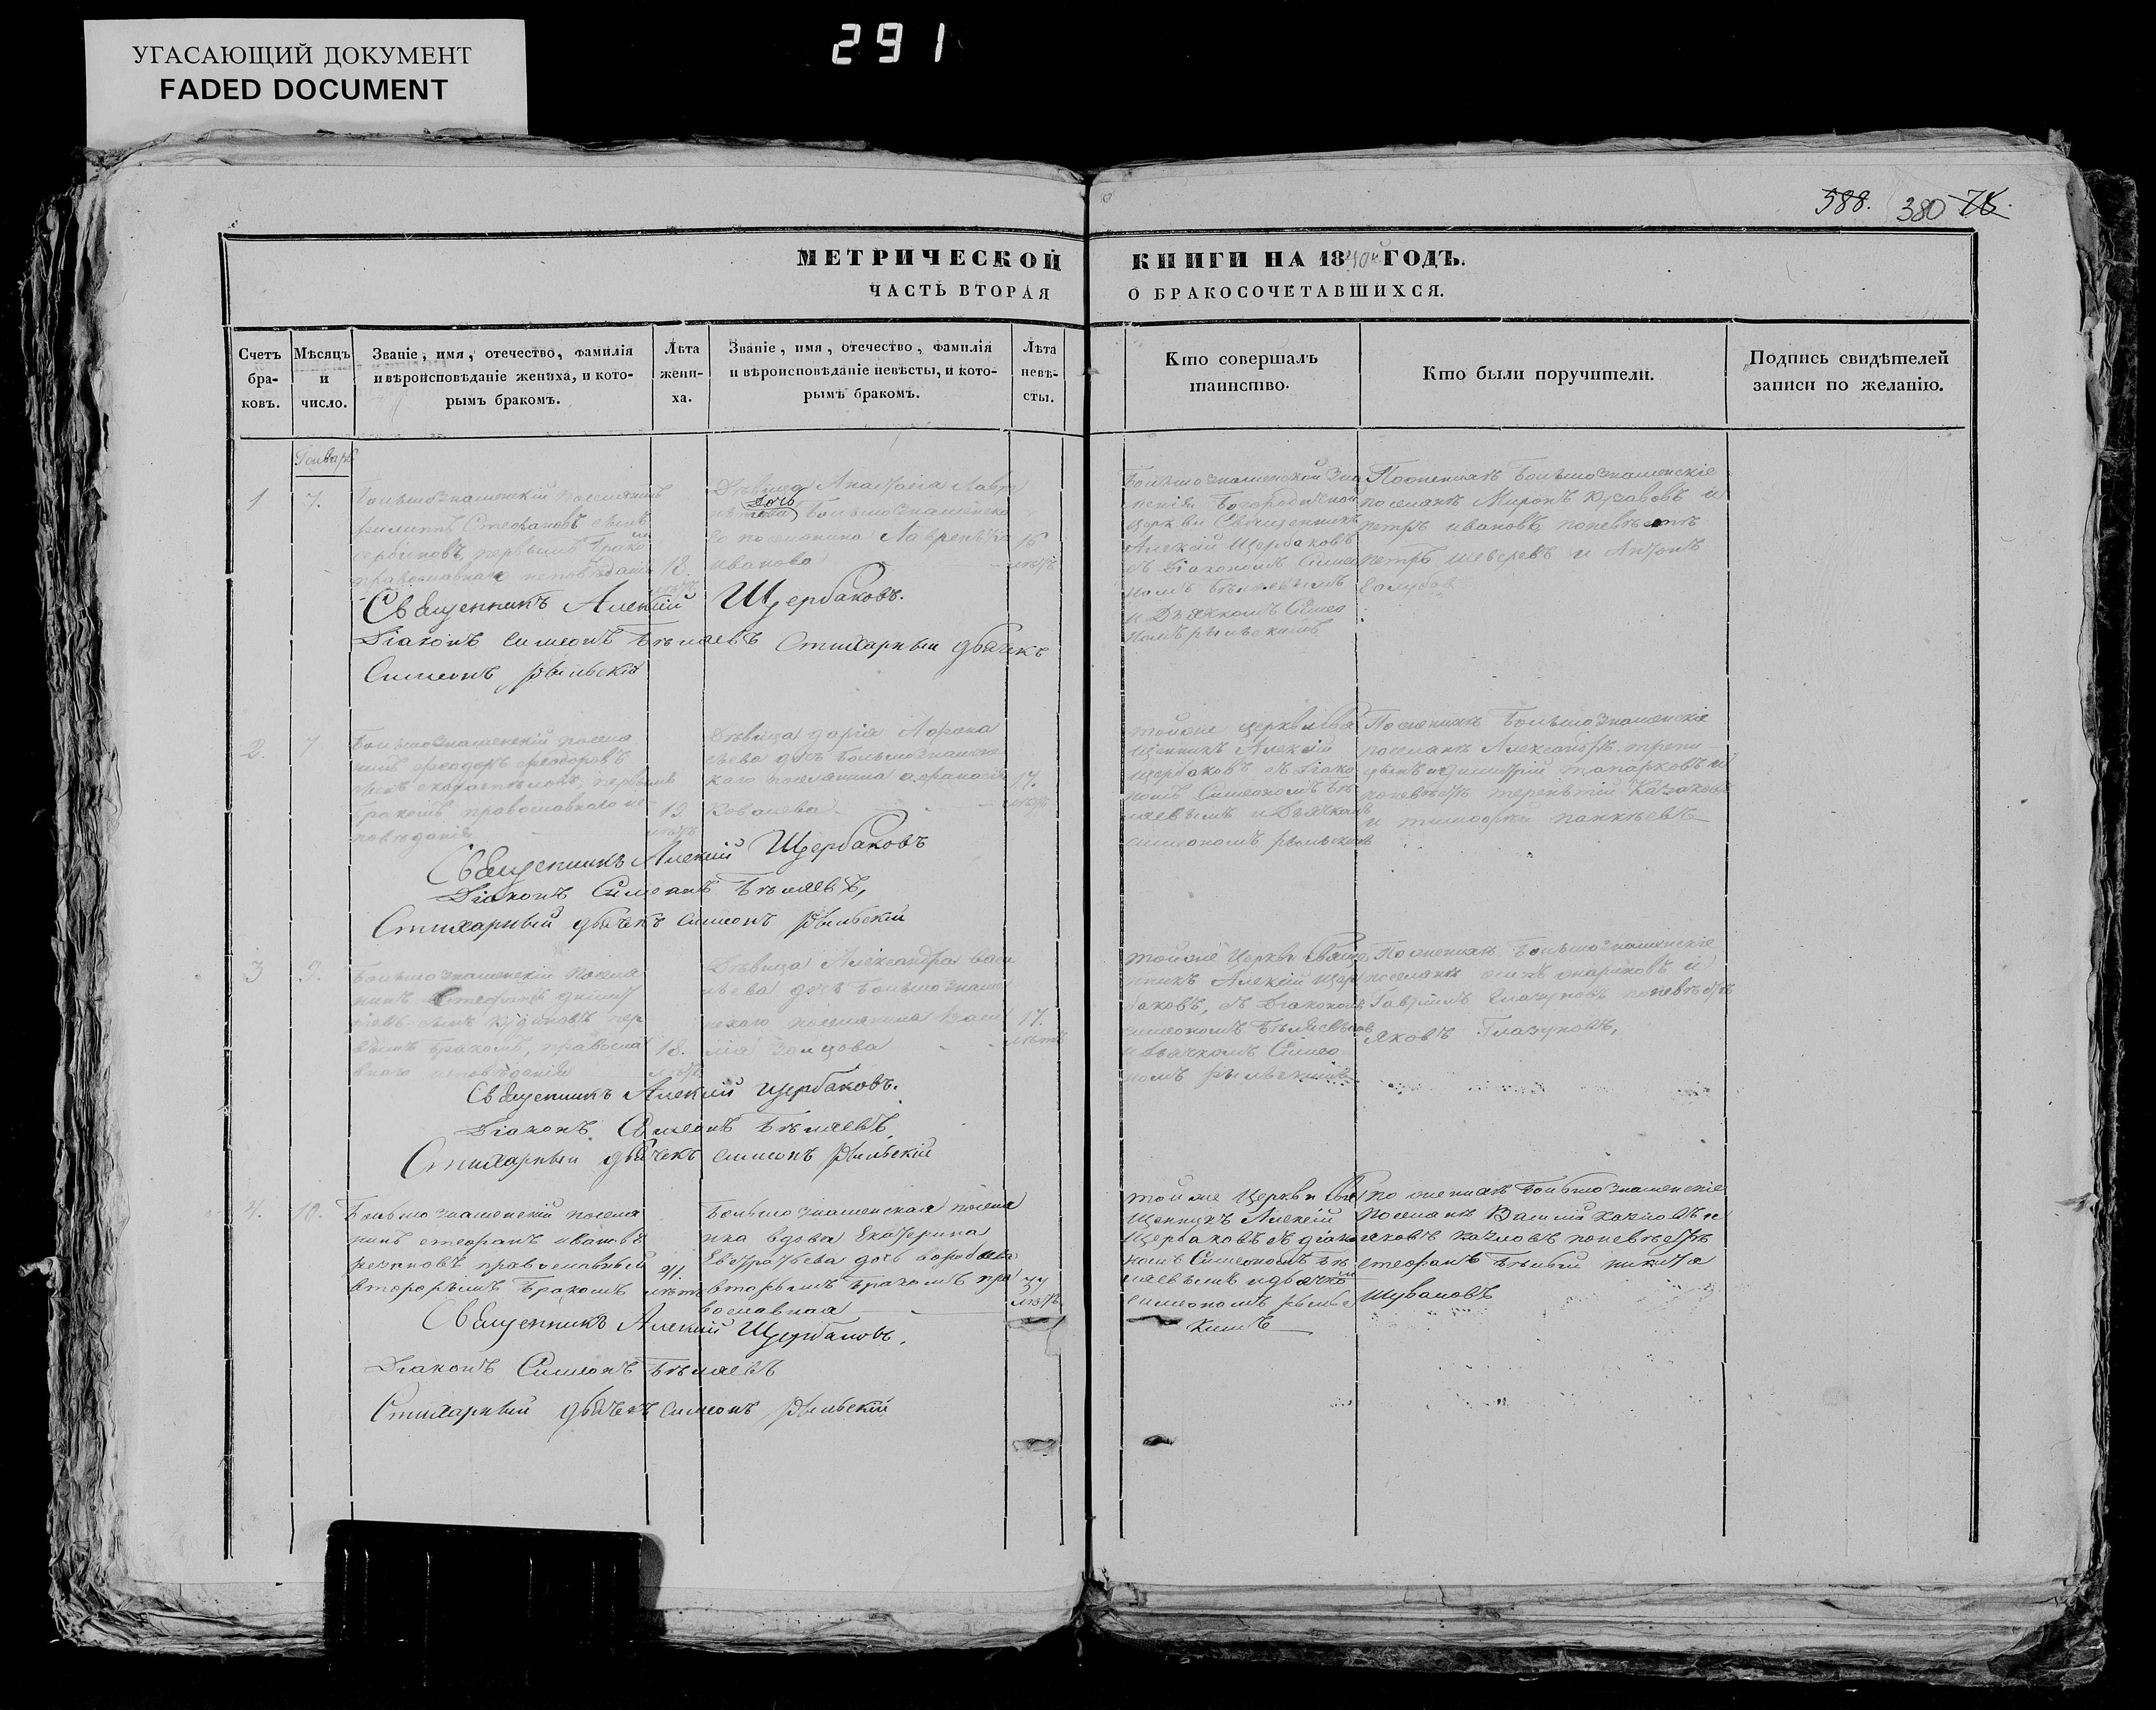 УГАСАЮЩИЙ ДОКУМЕНТ
FADED DOCUMENT
291
588. 380 76.
МЕТРИЧЕСКОЙ КНИГИ НА 1840й ГОДЪ.
ЧАСТЬ ВТОРАЯ О БРАКОСОЧЕТАВШИХСЯ.
Счетъ бра-ковъ.
Мѣсяцъ и число.
Званіе, имя, отечество, фамилія
и вѣроисповѣданіе жениха, и кото-
рымъ бракомъ.
Лѣта
жени-
ха.
Званіе, имя, отечество, фамилія
и вѣроисповѣданіе невѣсты, и кото-
рымъ бракомъ.
Лѣта
невѣ-
сты.
Кто совершалъ
таинство.
Кто были поручители.
Подпись свидѣтелей
записи по желанію.
Генварь
1
7.
Большознаменскій поселянинъ
филиппъ Стефановъ сынъ
первымъ Брако
православнаго исповѣданія
18.
лѣтъ
Дѣвица Анастасія Лавре
дочь
Большознаменска
го поселянина Лаврентія
иванова
16
лѣтъ
Большознаменской Зна
менія Богородичной
церкви Священникъ
Алексій Щербаковъ
съ Діакономъ Симео
номъ Бѣляевымъ
и Дьячкомъ Симео
номъ рыльскимъ
По женихѣ Большознаменскіе
поселяне Миронъ и
петръ ивановъ, по невѣстѣ
петръ и Антонъ
Священникъ Алексій Щербаковъ.
Діаконъ Симеонъ Бѣляевъ Стихарный дьячекъ
Симеонъ рыльскій
2.
7
Большознаменскій поселя
нинъ феодоръ феодоровъ
сынъ первымъ
бракомъ православнаго ис
повѣданія
19
лѣтъ
Дѣвица дарія Афона
сьева дочь Большознамене
каго поселянина афанасія
Ковалева
17.
лѣтъ
той же церкви Свя
щенникъ Алексій
щербаковъ съ Діако
номъ Симеономъ Бѣ
ляевымъ и Дьячкомъ
симеономъ рыльскимъ
По женихѣ Большознаменскіе
поселяне Александръ
и Димитрій и
по невѣстѣ терентій Казаковъ
и тимофей
Священникъ Алексій Щербаковъ
Діаконъ Симеонъ Бѣляевъ,
Стихарный дьячекъ симеонъ рыльскій
3
9.
Большознаменскій поселя
нинъ Стефанъ димит
ріевъ сынъ пер
вымъ бракомъ, правосла
внаго исповѣданія
18.
лѣтъ
Дѣвица Александра васи
льева дочь Большознаме
нскаго поселянина Васи
лія Заицова
17.
лѣтъ
той же Церкви Свяще
нникъ Алексій Щер
баковъ, съ Діакономъ
симеономъ Бѣляевымъ
и Дьячкомъ Симео
номъ рыльскимъ
По женихѣ Большознаменскіе
поселяне и
Гавріилъ Глазуновъ по невѣстѣ
Яковъ Глазуновъ,
Священникъ Алексій щербаковъ.
Діаконъ Симеонъ Бѣляевъ
Стихарный дьячекъ симеонъ рыльскій
4.
10.
Большознаменскій поселя
нинъ стефанъ ивановъ
православный
вторымъ Бракомъ
41.
лѣтъ
Большознаменская поселя
нка вдова Екатерина
Евстратьева дочь
вторымъ бракомъ пра
вославная
37
лѣтъ
той же Церкви Свя
щенникъ Алексій
Щербаковъ съ діако
номъ Симеономъ Бѣ
ляевымъ и дьячком
симеономъ рыльс
кимъ
по женихѣ Большознаменскіе
поселяне Василій и
яковъ по невѣстѣ
стефанъ Бѣлый никита
Шувановъ
Священникъ Алексій Щербаковъ.
Діаконъ Симеонъ Бѣляевъ
Стихарный дьячекъ симеонъ рыльскій